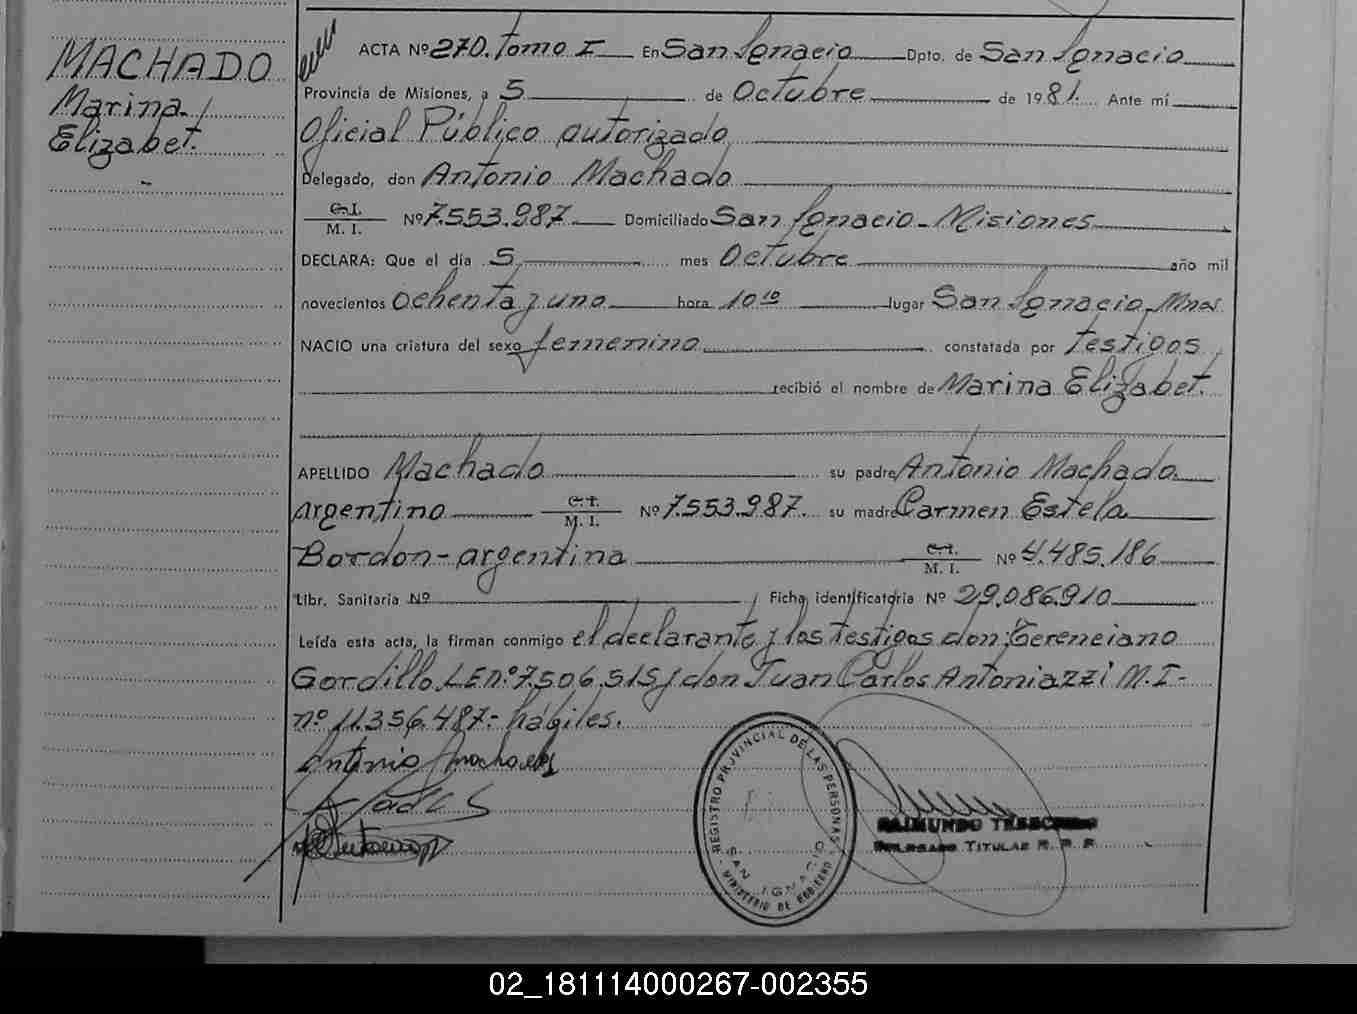 MACHADO
Marina
Elizabet.
ACTA Nº 270. Tomo I En San Ignacio Dpto. de San Ignacio
Provincia de Misiones, a 5 de Octubre de 1981. Ante mí
Oficial Público autorizado
Delegado, don Antonio Machado
C. I.
M. I. Nº 7.553.987 Domiciliado San Ignacio - Misiones
DECLARA: Que el día 5 mes Octubre año mil
novecientos ochenta y uno hora 10 10 lugar San Ignacio Mnes
NACIO una criatura del sexo femenino constatada por testigos
recibió el nombre de Marina Elizabet.
APELLIDO Machado su padre Antonio Machado
argentino C. I. M. I. Nº 7.553.987. su madre Carmen Estela
Bordon - argentina C. I. M. I. Nº 4.485.186
Libr. Sanitaria Nº Ficha identificatoria Nº 29.086.910
Leída esta acta, la firman conmigo el declarante y los testigos don:
Gordillo L E nº 7.506.515 y don Juan Carlos Antoniazzi M.I-
nº 11.356.487.- hábiles.
Antonio Machado
REGISTRO PROVINCIAL DE LAS PERSONAS
SAN IGNACIO
MINISTERIO DE GOBIERNO
RAIMUNDO
DELEGADO TITULAR R. P. P.
02_181114000267-002355